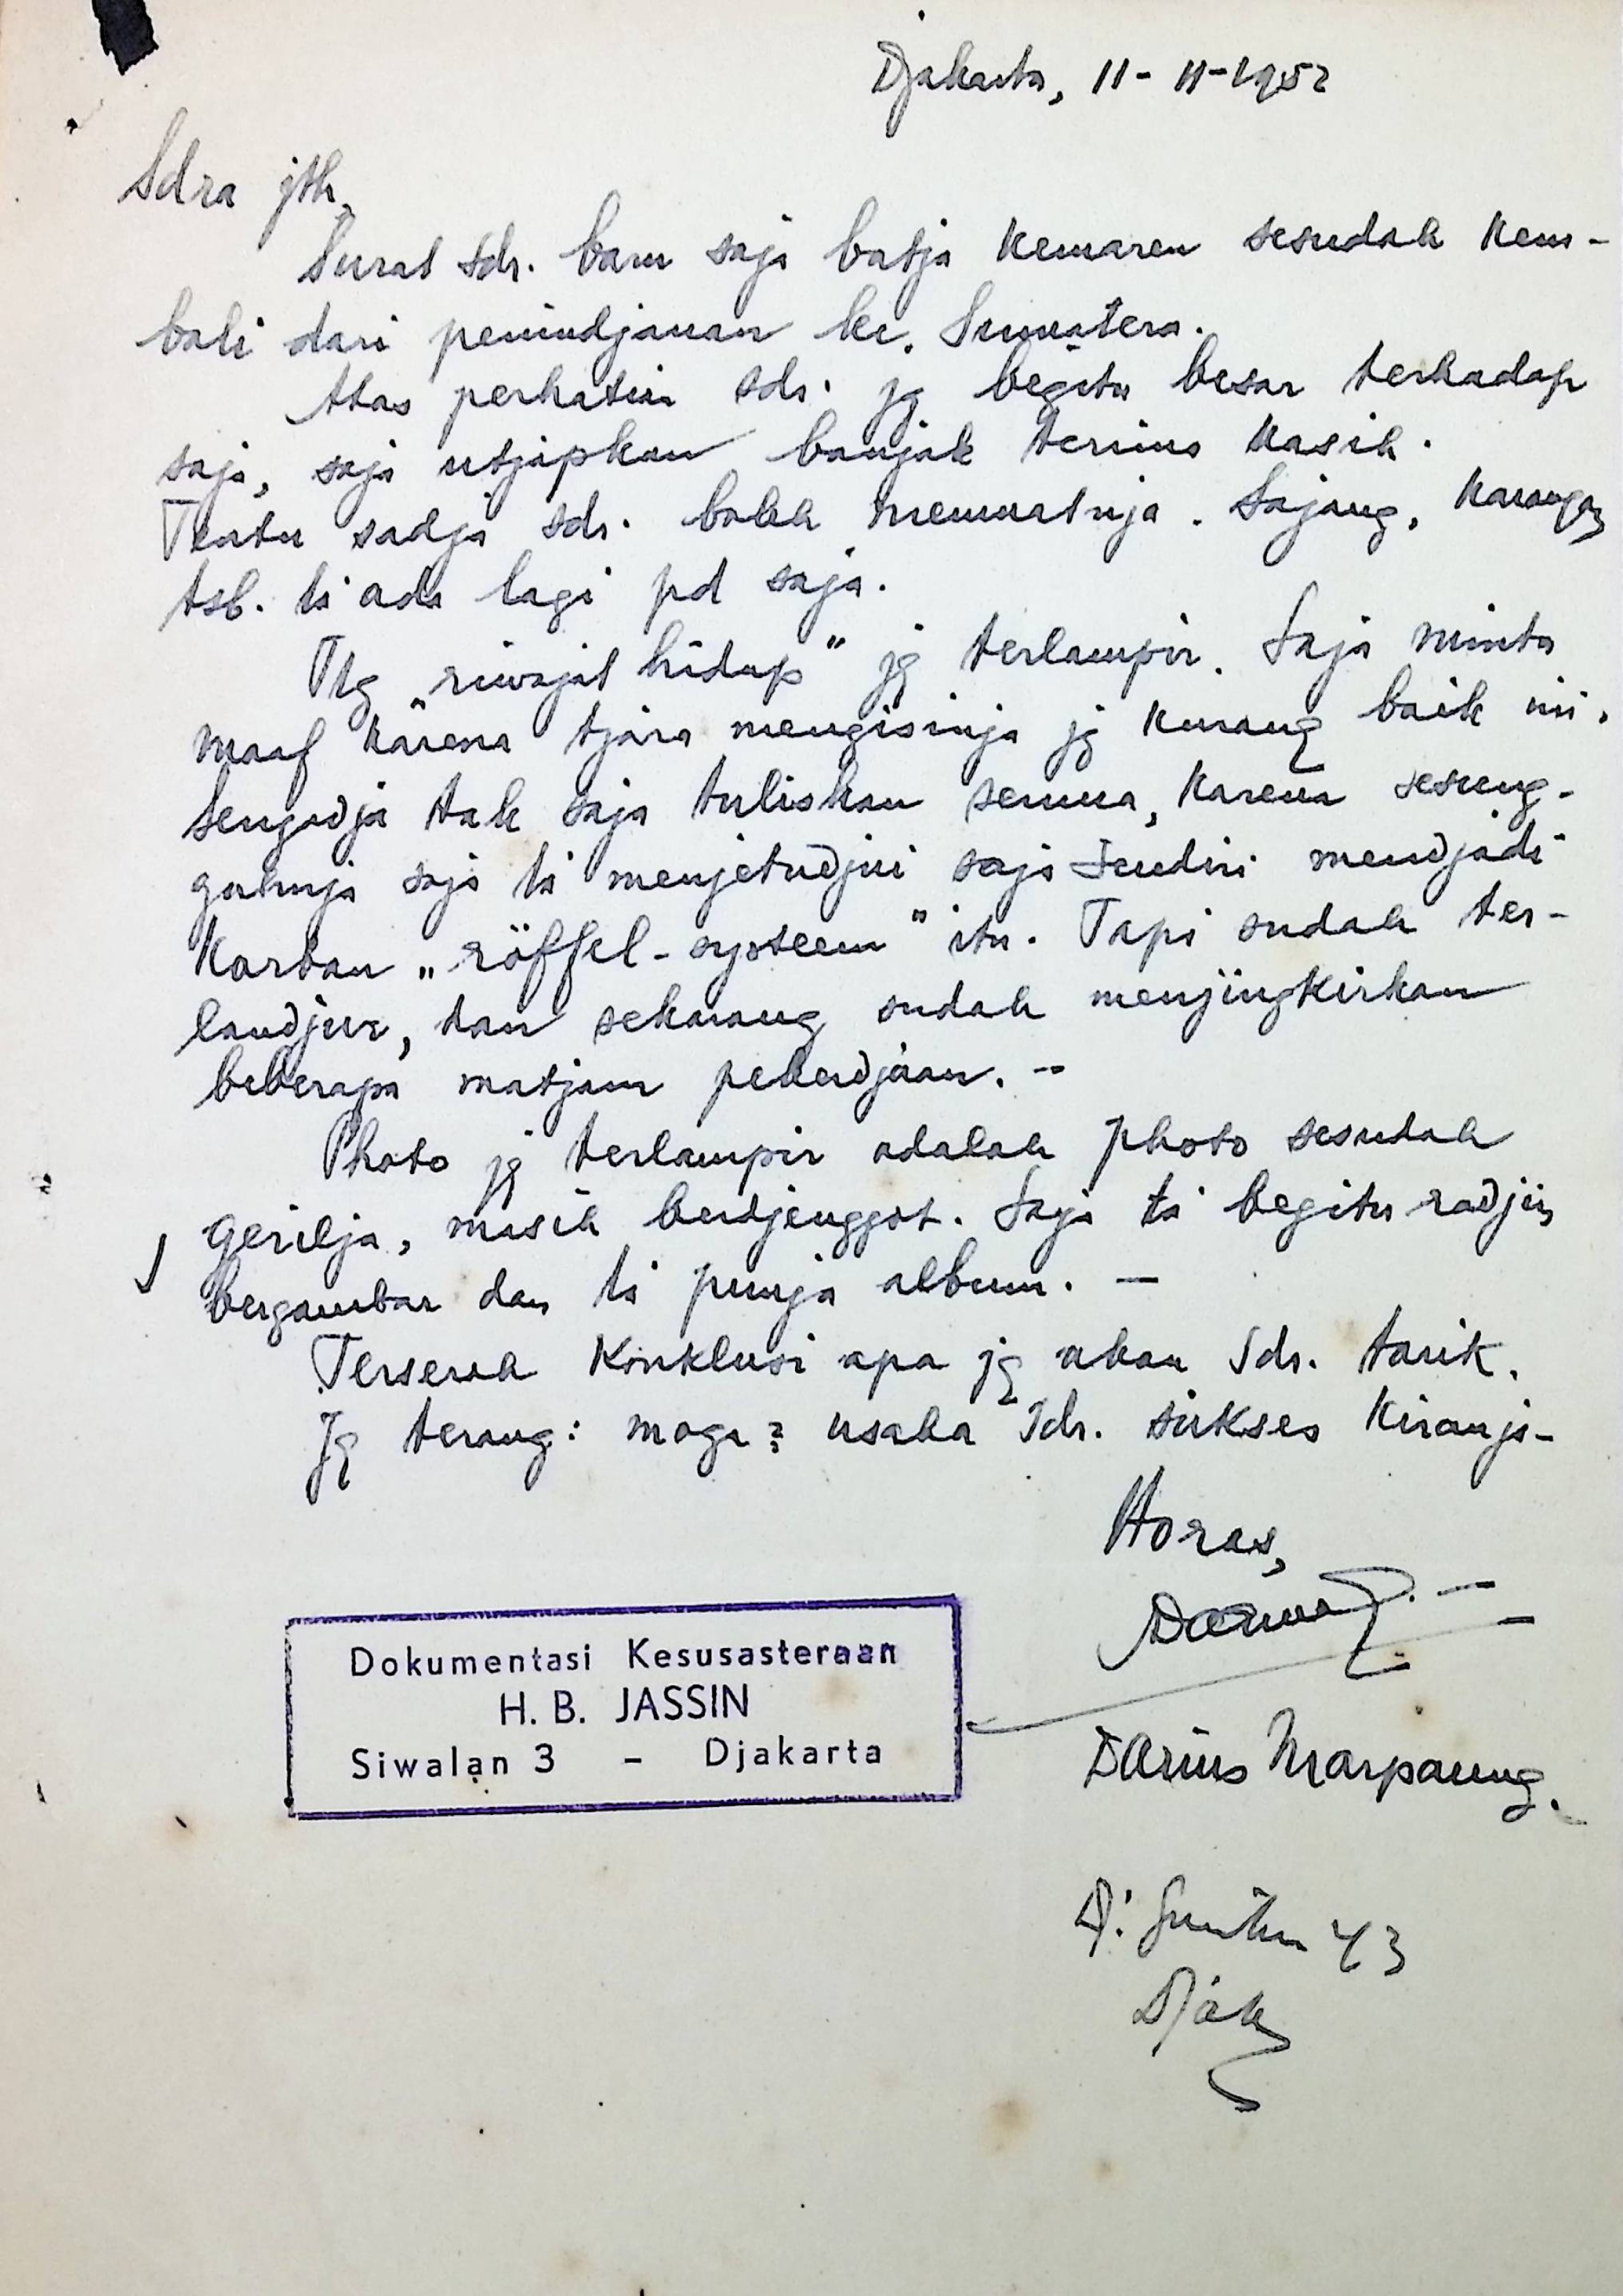 Djakarta, 11-11-1952
Sdra jth,
Surat sdr. baru saja batja kemaren sesudah kem-
bali dari penindjauan ke. Sumatera.
Atas perhatian sdr. jg begitu besar terhadap
saja, saja utjapkan banjak terima kasih.
Tentu sadja sdr. boleh memuatnja. Sajang, karangan
tsb. ta' ada lagi pd saja.
Ttg „riwajat hidup" jg terlampir. Saja minta
maaf karena tjara mengisinja jg kurang baik ini.
Sengadja tak saja tuliskan semua, karena sesung-
guhnja saja ta' menjetudjui saja sendiri mendjadi
korban „röffel-systeem" itu. Tapi sudah ter-
landjur, dan sekarang sudah menjingkirkan
beberapa matjam pekerdjaan. -
Photo jg terlampir adalah photo sesudah
gerilja, masih berdjenggot. Saja ta' begitu radjin
bergambar dan ta' punja album. -
Terserah konklusi apa jg akan Sdr. tarik.
Jg terang: moga2 usaha Sdr. sukses kiranja -
Horas,
Darius Marpaung.
43
Djak
Dokumentasi Kesusasteraan
H. B. JASSIN
Siwalan 3 - Djakarta